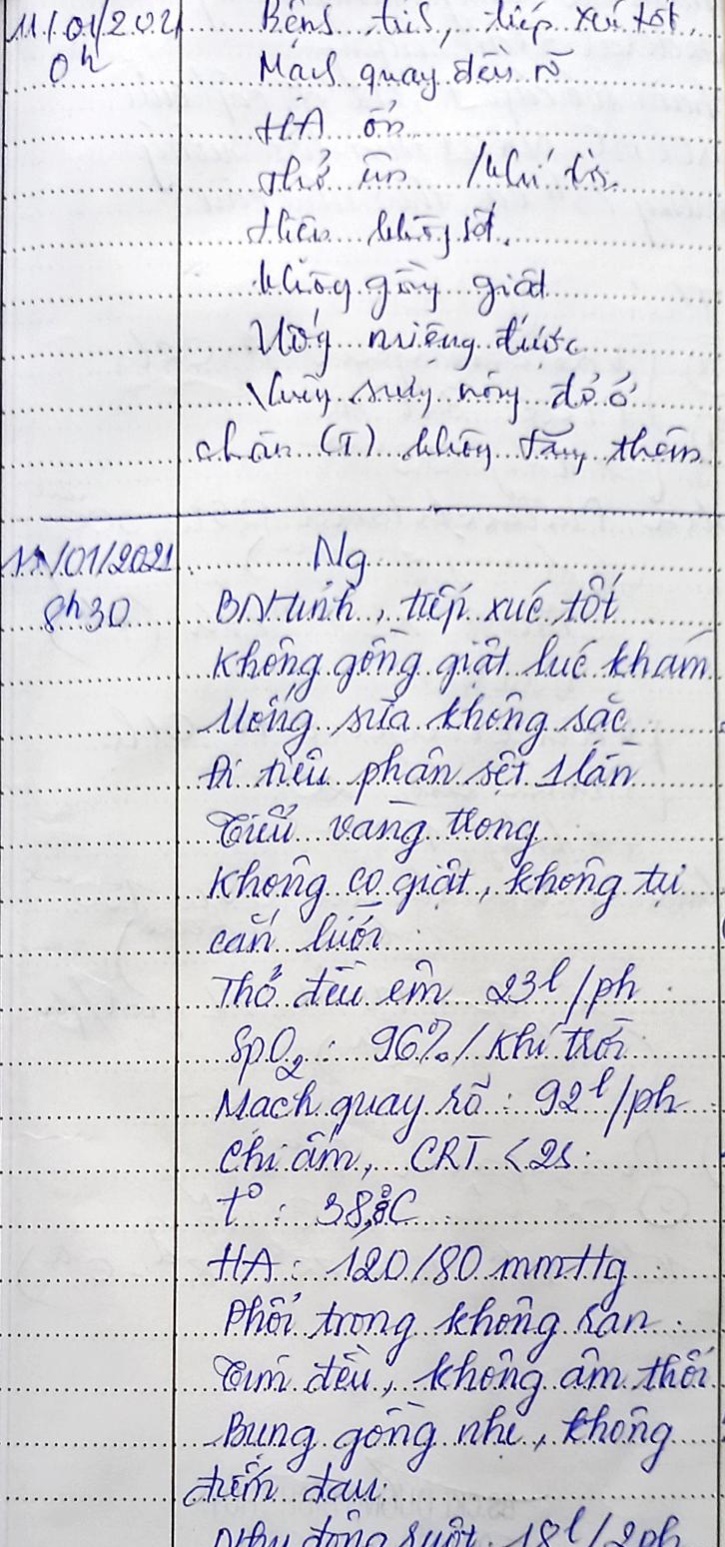 11/01/2021 Bệnh tỉnh, tiếp xúc tốt.
0h Mạch quay đều rõ
HA ổn
thở êm /khí trời
Hiện không sốt.
không gồng giật
Uống miệng được
Vùng sưng nóng đỏ ở
chân (T) không tăng thêm
11/01/2021 Ng
8h30 BN tỉnh, tiếp xúc tốt
Không gồng giật lúc khám
Uống sữa không sặc
Đi tiêu phân sệt 1 lần
Tiểu vàng trong
Không co giật, không tự
cắn lưỡi
Thở đều êm 23l/ph
SpO2: 96%/ Khí trời
Mạch quay rõ: 92l/ph
Chi ấm, CRT <2s
t°: 38,8°C
HA: 120/80 mmHg
Phổi trong không ran
Tim đều, không âm thổi
Bụng gồng nhẹ, không
điểm đau
Nhu động ruột: 18l/2ph